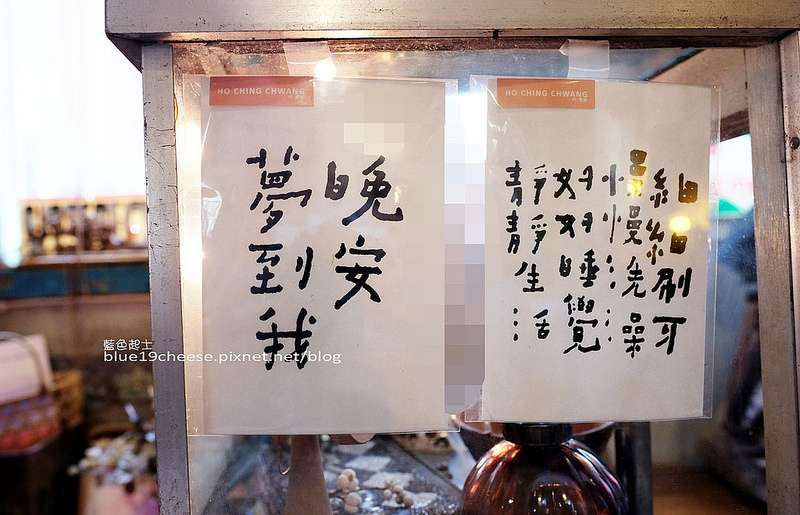 HO CHING CHWANG
晚安
夢到我
HO CHING CHWANG
細細刷牙
慢慢洗澡
好好睡覺
靜靜生活
藍色起士
blue19cheese.pixnet.net/blog